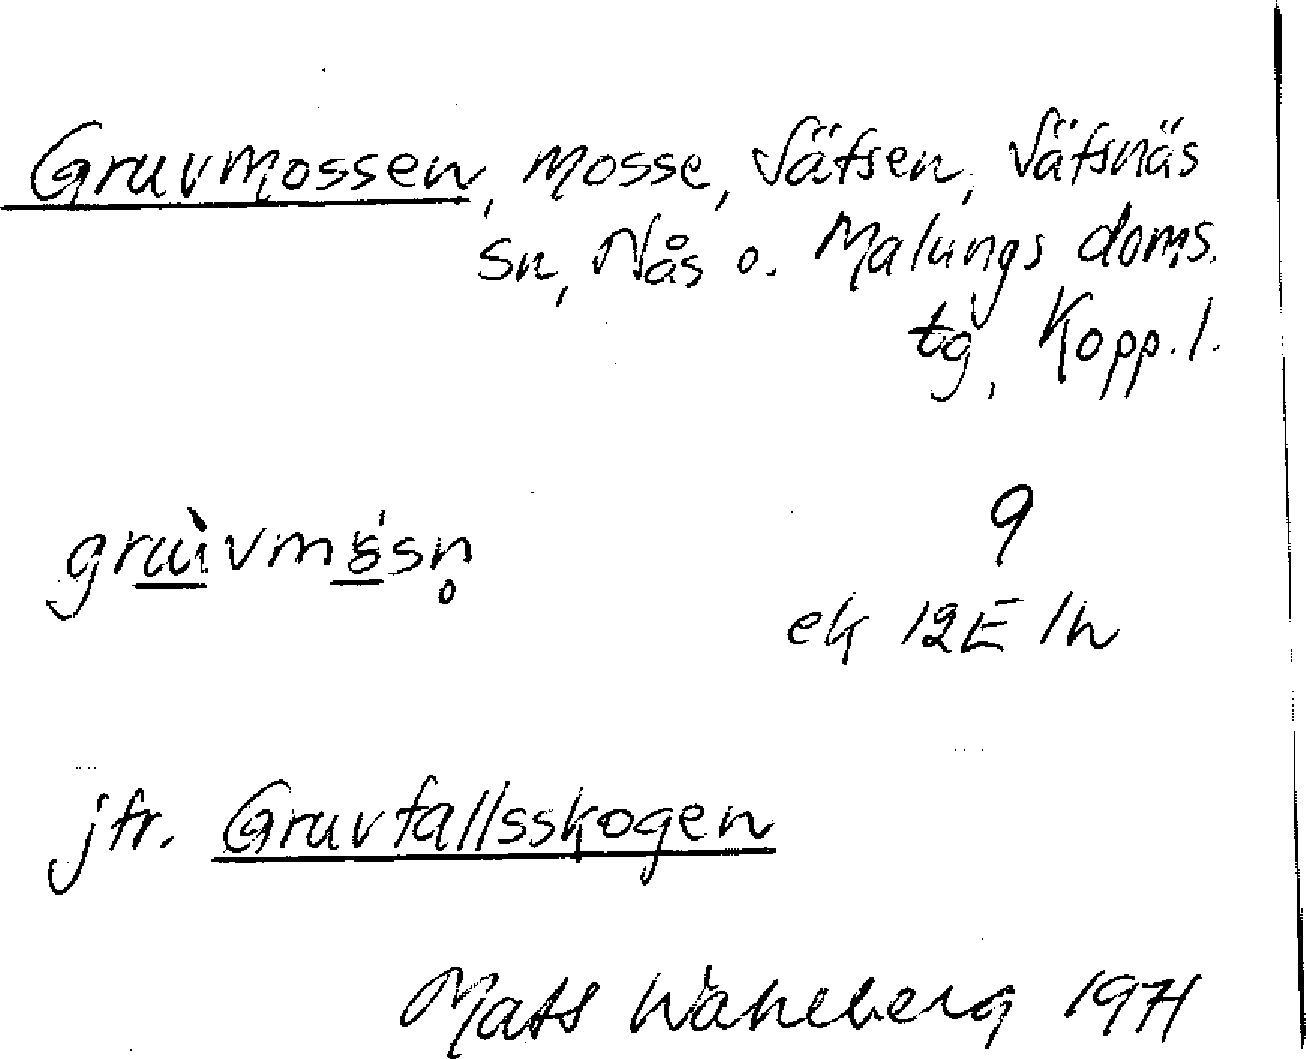 Gruvmossen, mosse, Säfsen, Säfsnäs
sn, Nås o. Malungs doms.
tg, Kopp.l.
9
ek 12E 1h
jfr. Gruvfallsskogen
Mats Wahlberg 1971